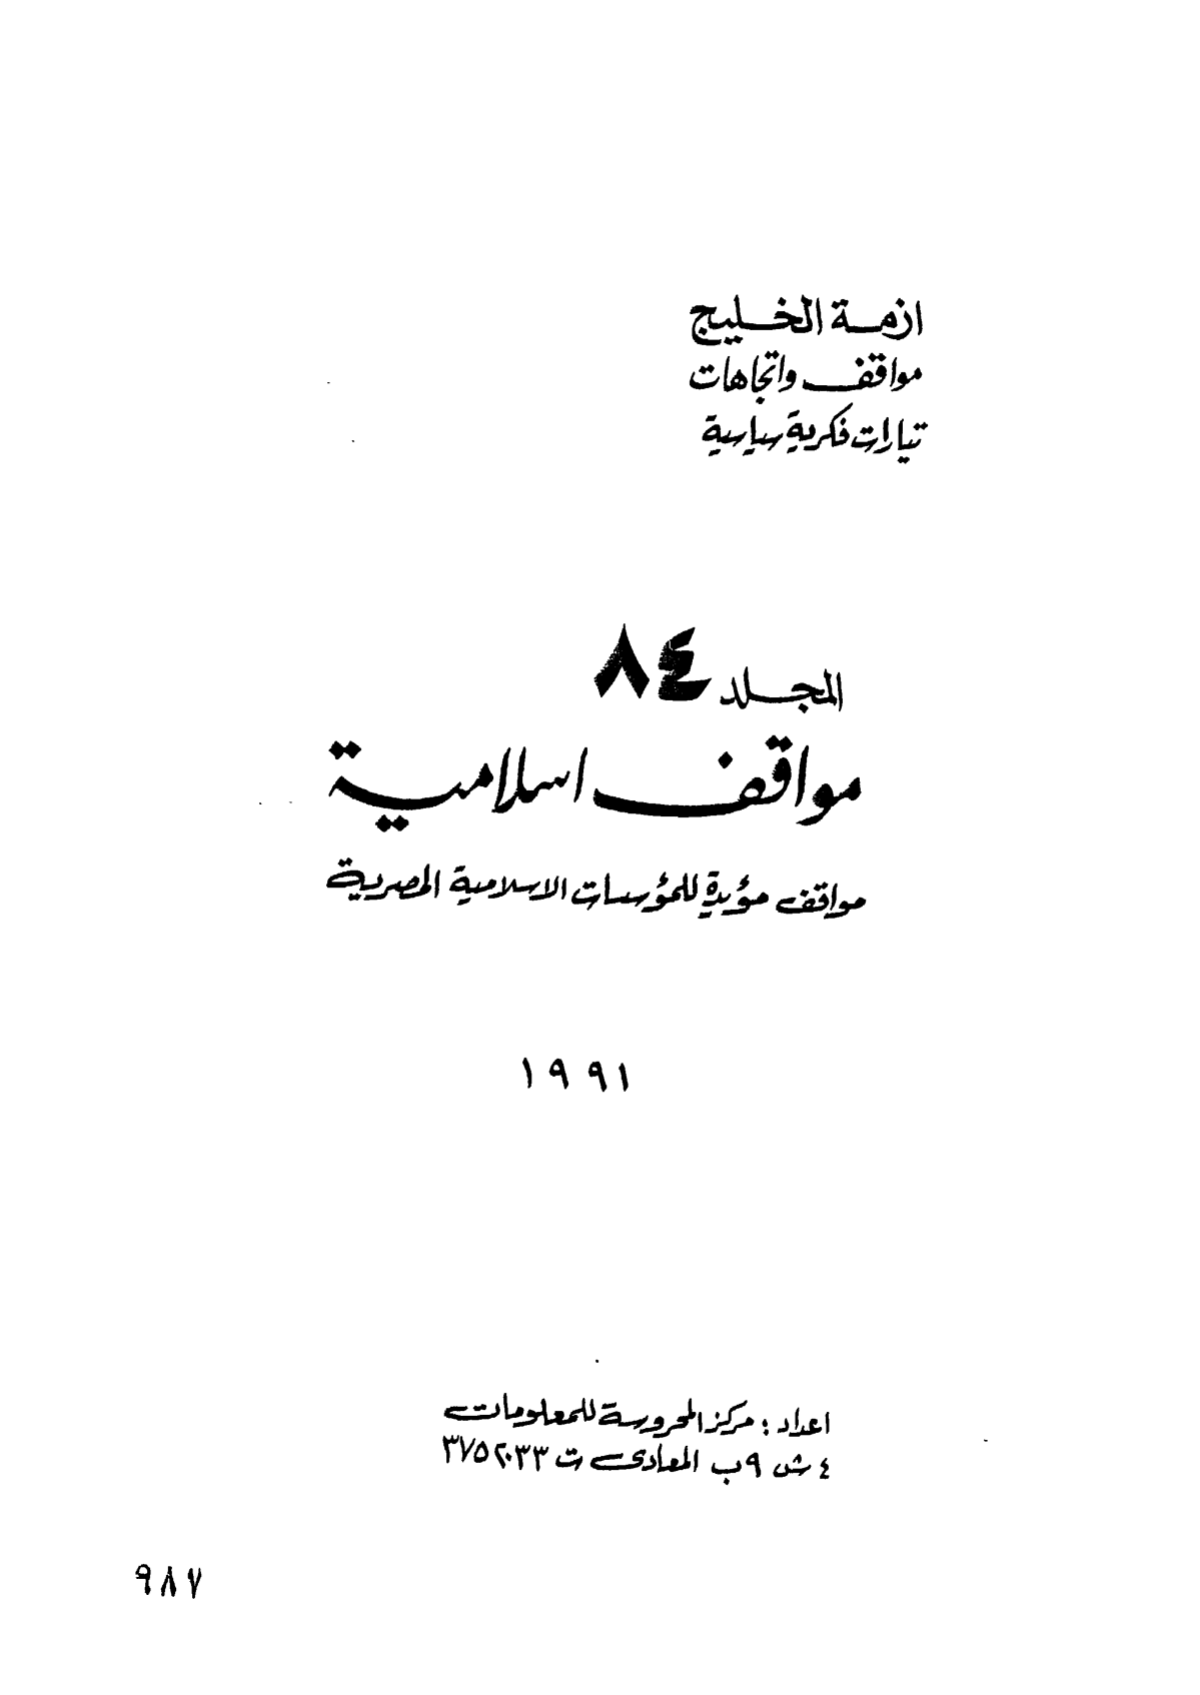 ازمة الخليج
مواقف واتجاهات
تيارات فكرية سياسية
المجلد ٨٤
مواقف اسلامية
مواقف مؤيدة للمؤسسات الاسلامية المصرية
١٩٩١
اعداد : مركز المحروسة للمعلومات
٤ ش ٩ب المعادى ت ٣٧٥٢٠٣٣
٩٨٧